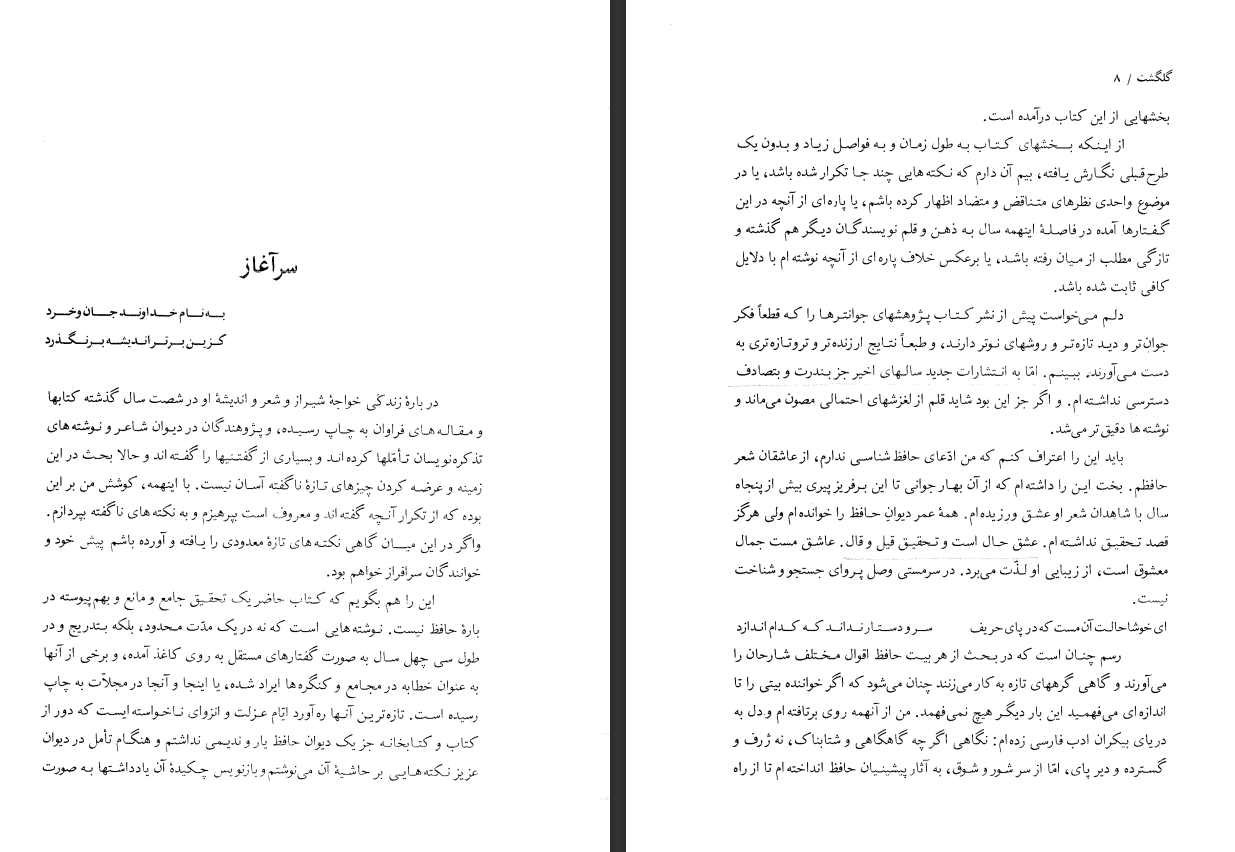 سرآغاز
به نام خداوند جان و خرد
کزین برتر اندیشه برنگذرد
دربارهٔ زندگی خواجهٔ شیراز و شعر و اندیشهٔ او در شصت سال گذشته کتابها
و مقاله‌های فراوان به چاپ رسیده، و پژوهندگان در دیوان شاعر و نوشته‌های
تذکره‌نویسان تأملها کرده‌اند و بسیاری از گفتنیها را گفته‌اند و حالا بحث در این
زمینه و عرضه کردن چیزهای تازهٔ ناگفته آسان نیست. با اینهمه، کوشش من بر این
بوده که از تکرار آنچه گفته‌اند و معروف است بپرهیزم و به نکته‌های ناگفته بپردازم.
واگر در این میان گاهی نکته‌های تازهٔ معدودی را یافته و آورده باشم پیش خود و
خوانندگان سرافراز خواهم بود.
این را هم بگویم که کتاب حاضر یک تحقیق جامع و مانع و بهم‌پیوسته در
بارهٔ حافظ نیست. نوشته‌هایی است که نه در یک مدّت محدود، بلکه بتدریج و در
طول سی چهل سال به صورت گفتارهای مستقل به روی کاغذ آمده، و برخی از آنها
به عنوان خطابه در مجامع و کنگره‌ها ایراد شده، یا اینجا و آنجا در مجلاّت به چاپ
رسیده است. تازه‌ترین آنها ره‌آورد ایّام عزلت و انزوای ناخواسته ایست که دور از
کتاب و کتابخانه جز یک دیوان حافظ یار و ندیمی نداشتم و هنگام تأمل در دیوان
عزیز نکته‌هایی بر حاشیهٔ آن می‌نوشتم و بازنویس چکیدهٔ آن یادداشتها به صورت
گلگشت / ۸
بخشهایی از این کتاب درآمده است.
از اینکه بخشهای کتاب به طول زمان و به فواصل زیاد و بدون یک
طرح قبلی نگارش یافته، بیم آن دارم که نکته‌هایی چند جا تکرار شده باشد، یا در
موضوع واحدی نظرهای متناقض و متضاد اظهار کرده باشم، یا پاره‌ای از آنچه در این
گفتارها آمده در فاصلهٔ اینهمه سال به ذهن و قلم نویسندگان دیگر هم گذشته و
تازگی مطلب از میان رفته باشد، یا برعکس خلاف پاره‌ای از آنچه نوشته‌ام با دلایل
کافی ثابت شده باشد.
دلم می‌خواست پیش از نشر کتاب پژوهشهای جوانترها را که قطعاً فکر
جوان‌تر و دید تازه‌تر و روشهای نوتر دارند، و طبعاً نتایج ارزنده‌تر و تروتازه‌تری به
دست می‌آورند، ببینم. امّا به انتشارات جدید سالهای اخیر جز بندرت و بتصادف
دسترسی نداشته‌ام. و اگر جز این بود شاید قلم از لغزشهای احتمالی مصون می‌ماند و
نوشته‌ها دقیق‌تر می‌شد.
باید این را اعتراف کنم که من ادّعای حافظ شناسی ندارم، از عاشقان شعر
حافظم. بخت این را داشته‌ام که از آن بهار جوانی تا این برفریز پیری بیش از پنجاه
سال با شاهدان شعر او عشق ورزیده‌ام. همهٔ عمر دیوانِ حافظ را خوانده‌ام ولی هرگز
قصد تحقیق نداشته‌ام. عشق حال است و تحقیق قیل و قال. عاشق مست جمال
معشوق است، از زیبایی او لذّت می‌برد. در سرمستی وصل پروای جستجو و شناخت
نیست.
ای خوشا حالت آن مست که در پای حریف سر و دستار نداند که کدام اندازد
رسم چنان است که در بحث از هر بیت حافظ اقوال مختلف شارحان را
می‌آورند و گاهی گرههای تازه به کار می‌زنند چنان می‌شود که اگر خواننده بیتی را تا
اندازه‌ای می‌فهمید این بار دیگر هیچ نمی‌فهمد. من از آنهمه روی برتافته‌ام و دل به
دریای بیکران ادب فارسی زده‌ام: نگاهی اگرچه گاهگاهی و شتابناک، نه ژرف و
گسترده و دیر پای، امّا از سر شور و شوق، به آثار پیشینیان حافظ انداخته‌ام تا از راه